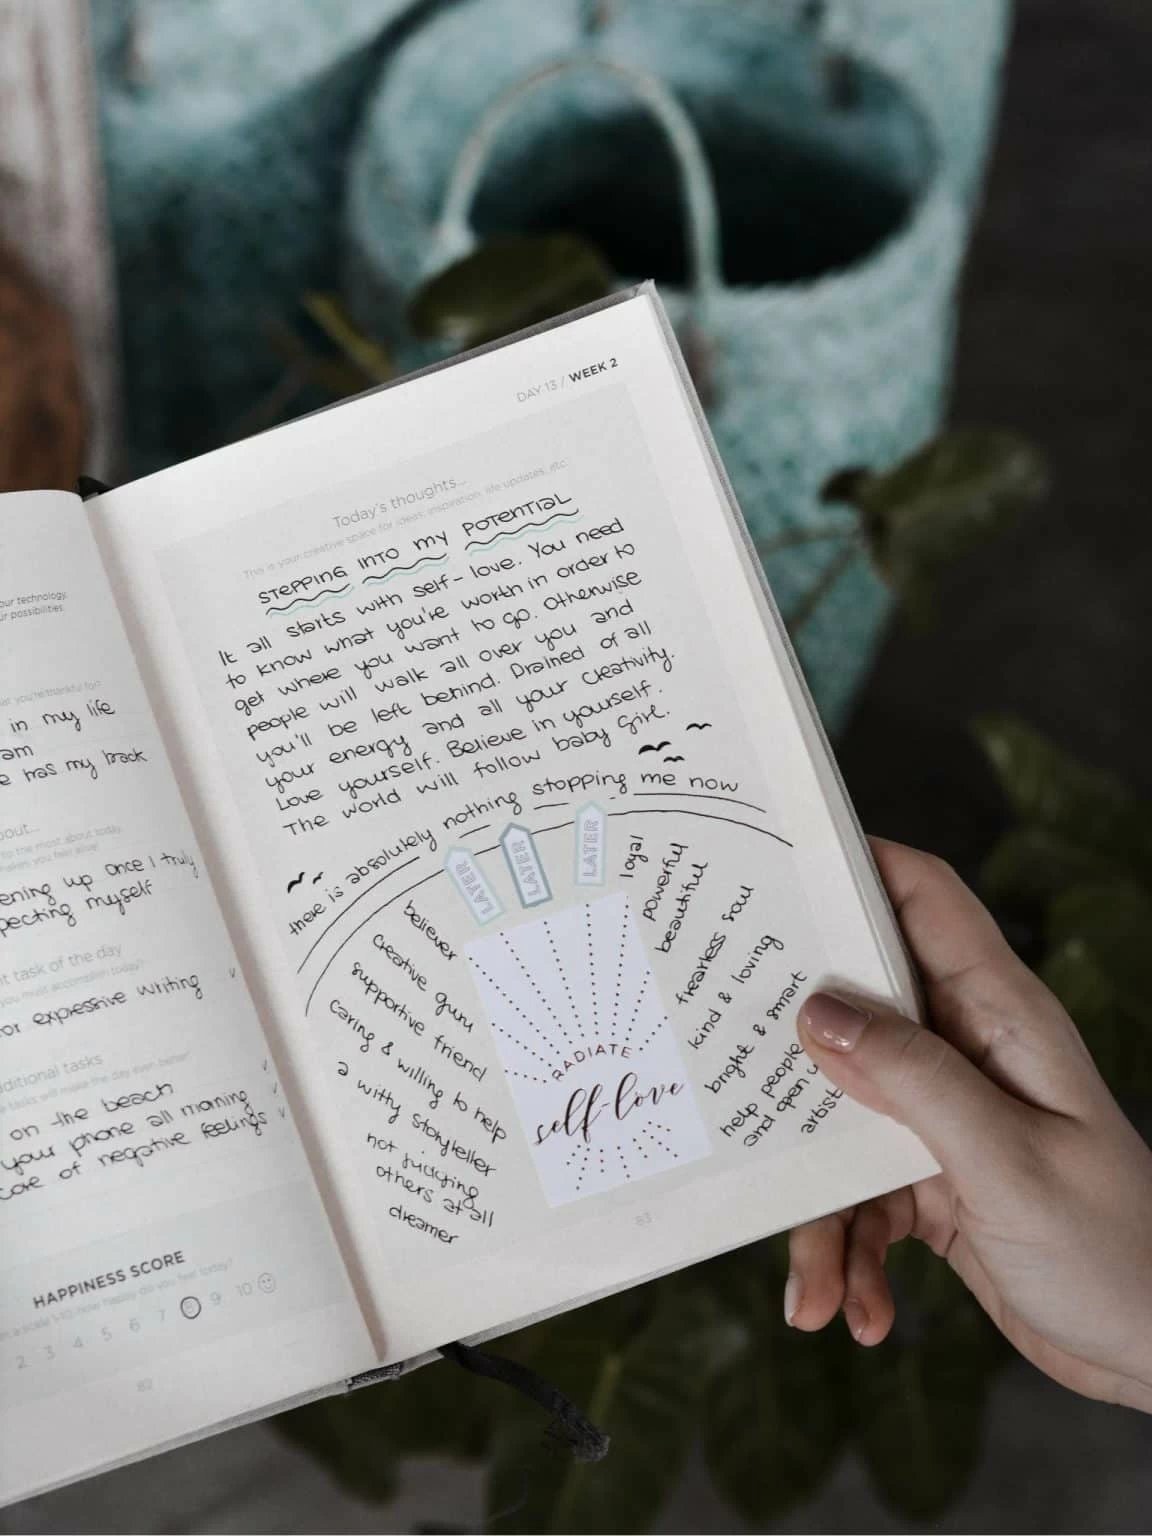 our technology,
ur possibilities.
what you're thankful for?
in my life
am
e has my back
bout...
to the most about today.
makes you feel alive!
ening up once I truly
pecting myself
nt task of the day
you must accomplish today?
or expressive writing
dditional tasks
tasks will make the day even better!
on the beach
your phone all morning
core of negative feelings
HAPPINESS SCORE
on a scale 1-10, how happy do you feel today?
2 3 4 5 6 7 8 9 10
82
DAY 13 / WEEK 2
Today's thoughts...
This is your creative space for ideas, inspiration, life updates, etc.
STEPPING INTO MY POTENTIAL
It all starts with self-love. You need
to know what you're worth in order to
get where you want to go. Otherwise
people will walk all over you and
you'll be left behind. Drained of all
your energy and all your creativity.
Love yourself. Believe in yourself.
The world will follow baby girl.
there is absolutely nothing stopping me now
LATER
LATER
LATER
believer
creative guru
supportive friend
caring & willing to help
a witty storyteller
not judging
others at all
dreamer
RADIATE
self-love
loyal
powerful
beautiful
fearless soul
kind & loving
bright & smart
help people
and open u
artist
83